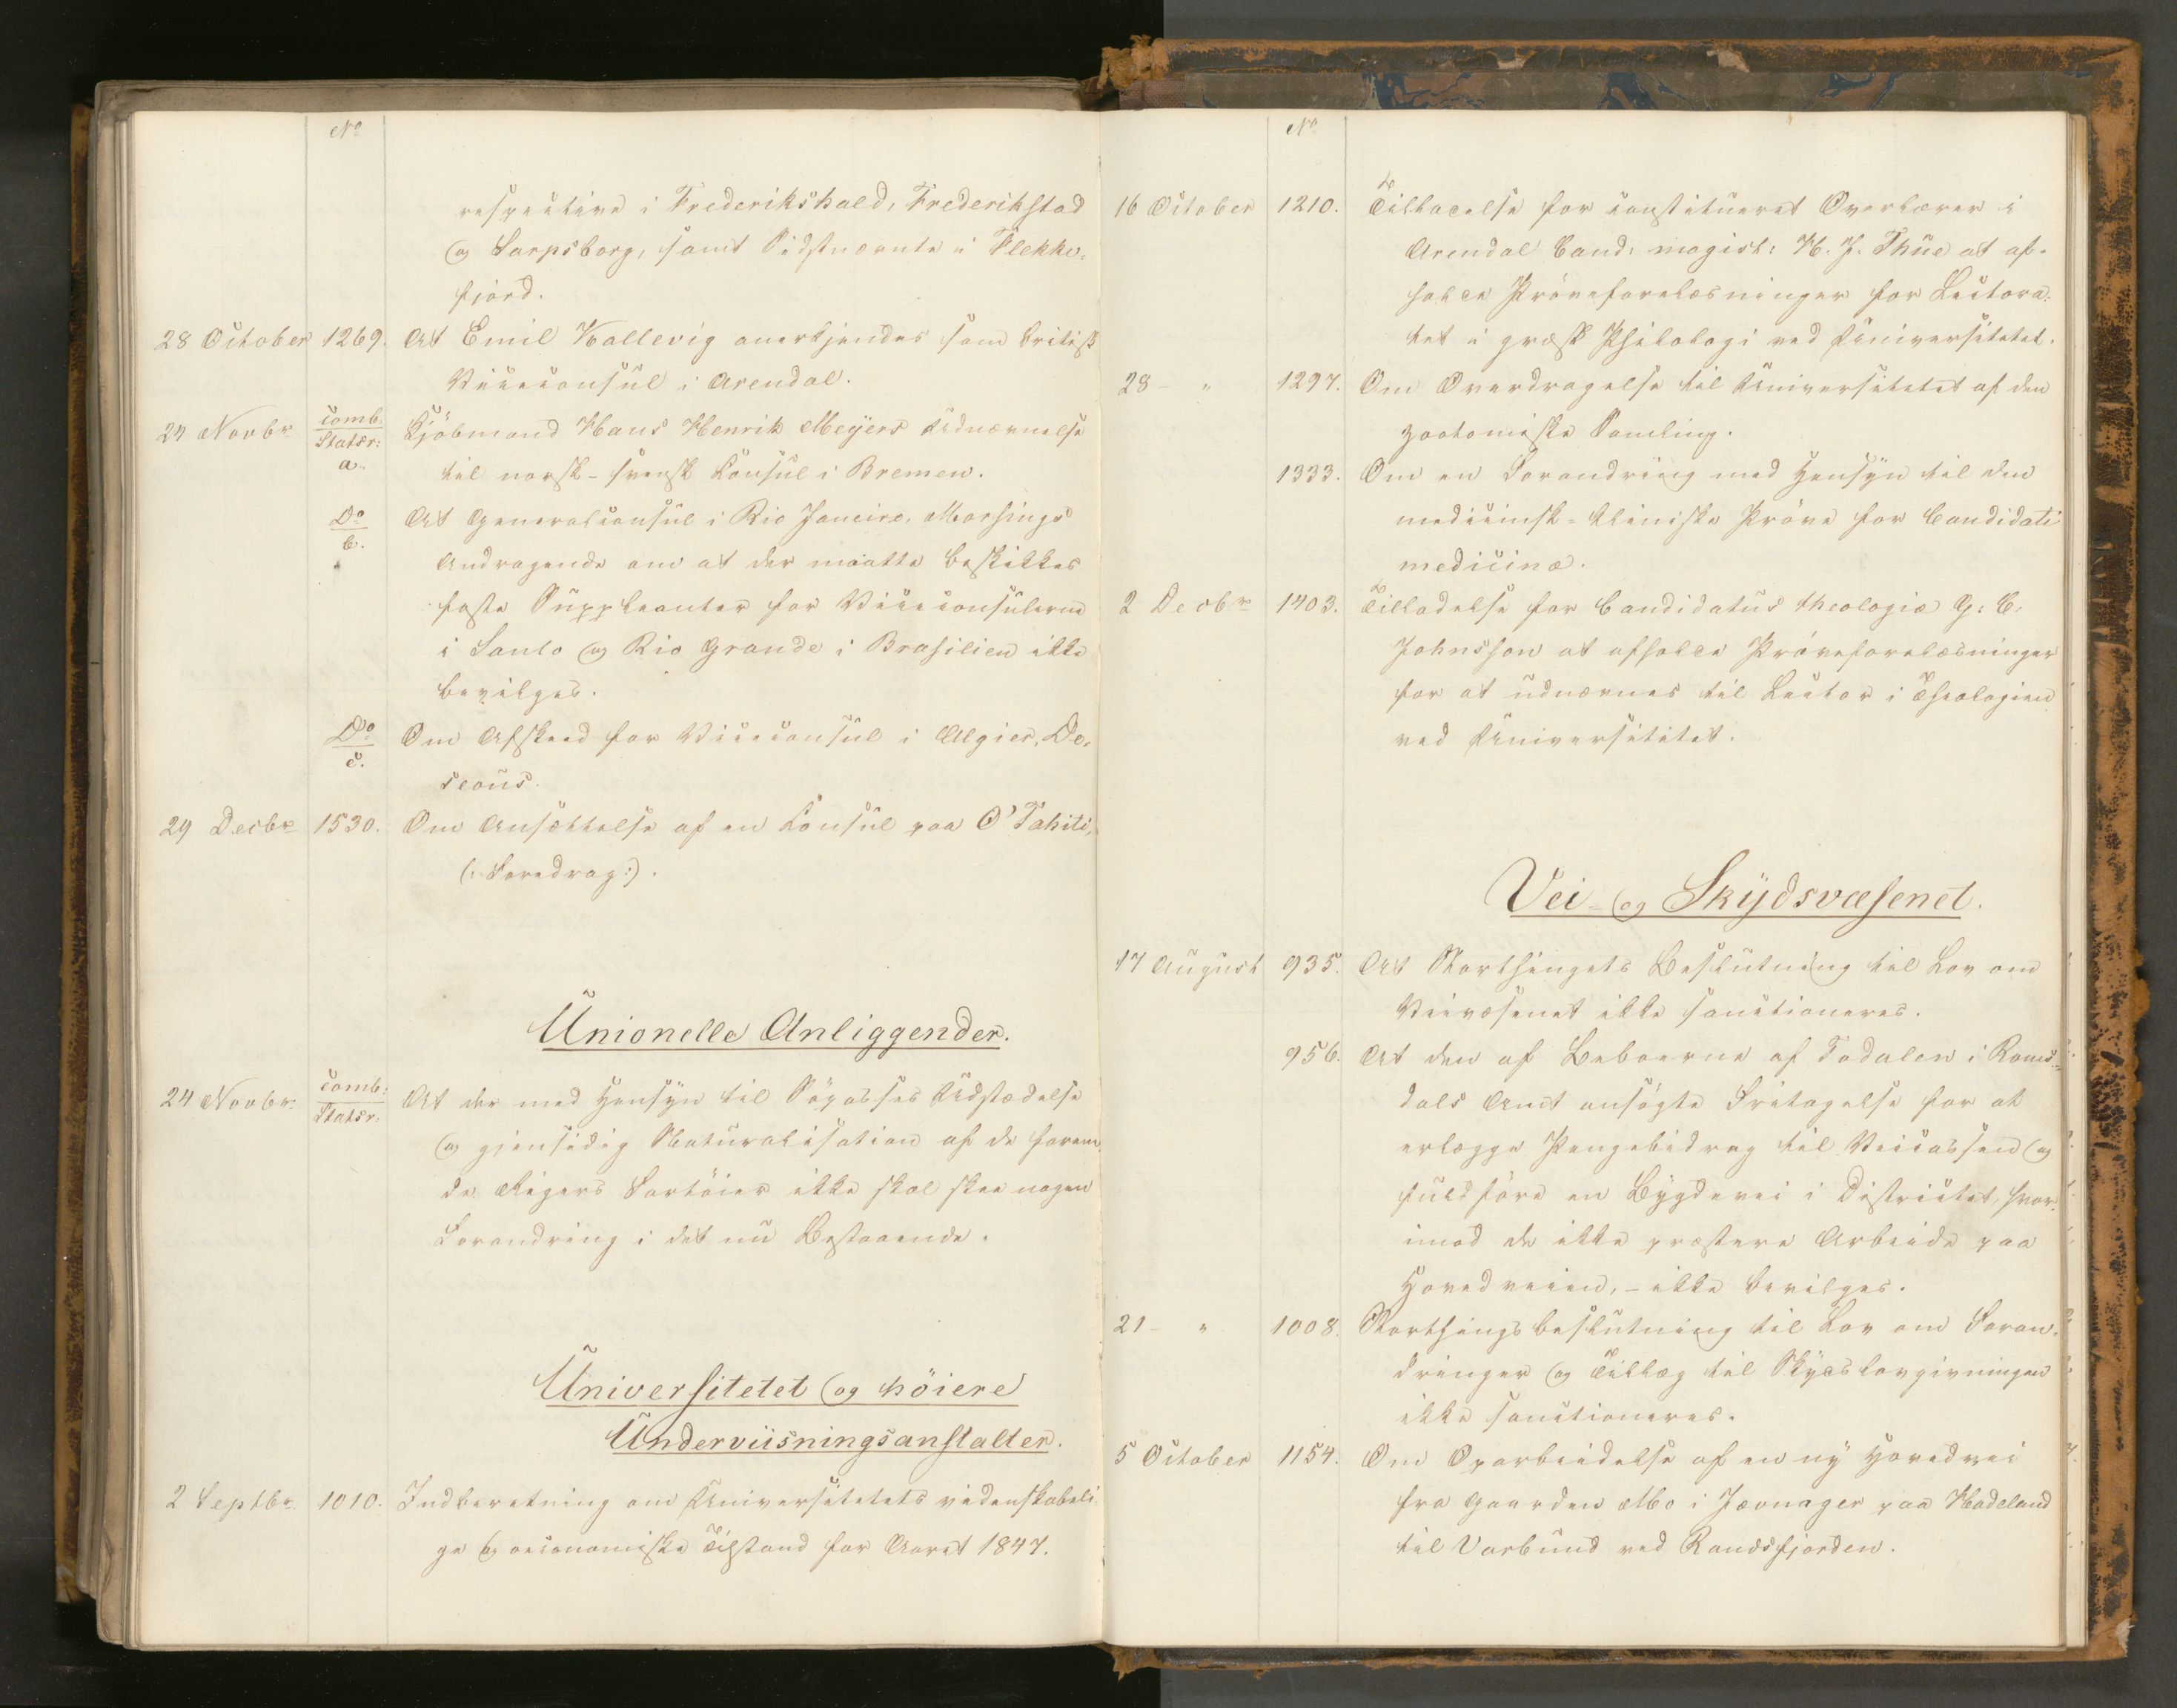 No
respective i Frederikshald, Frederikstad
og Sarpsborg, samt Sidstnævnte i Flekke-
fjord.
28 October 1269. At Emil Kallevig anerkjendes som britisk
Viceconsul i Arendal.
24 Novbr comb. Statsr: a. Kjöbmand Hans Henrik Meyers Udnævnelse
til norsk-svensk Consul i Bremen.
Do b. At Generalconsul i Rio Janeiro, Morsings
Andragende om at der maatte beskikkes
faste Suppleanter for Viceconsulerne
i Santo og Rio Grande i Brasilien ikke
bevilges.
Do c. Om Afsked for Viceconsul i Algier, De-
scous.
29 Decbr 1530. Om Ansættelse af en Consul paa O'Tahiti,
(: Foredrag:).
Unionelle Anliggender.
24 Novbr. comb: Statsr. At der med Hensyn til Söpasses Udstædelse
og gjensidig Naturalisation af de foren-
de Rigers Fartöier ikke skal skee nogen
Forandring i det nu Bestaaende.
Universitetet og höiere
Underviisningsanstalter.
2 Septbr. 1010. Indberetning om Universitetets videnskabeli-
ge og oeconomiske Tilstand for Aaret 1847.
No
16 October 1210. Tilladelse for constitueret Overlærer i
Arendal Cand: magist: H. J. Thue at af-
holde Pröveforelæsninger for Lectora-
tet i græsk Philologi ved Universitetet.
28 - " 1297. Om Overdragelse til Universitetet af den
zootomiske Samling.
1333. Om en Forandring med Hensyn til den
medicinsk-kliniske Pröve for Candidati
medicinæ.
2 Decbr 1403. Tilladelse for Candidatus theologiæ G: C:
Johnsson at afholde Pröveforelæsninger
for at udnævnes til Lector i Theologien
ved Universitetet.
Vei- og Skydsvæsenet.
17 August 935. At Storthingets Beslutning til Lov om
Veivæsenet ikke sanctioneres.
956. At den af Beboerne af Todalen i Roms-
dals Amt ansögte Fritagelse for at
erlægge Pengebidrag til Veicassen og
fuldföre en Bygdevei i Districtet, hvor-
imod de ikke præstere Arbeide paa
Hovedveien, - ikke bevilges.
21 - " 1008. Storthingsbeslutning til Lov om Foran-
dringer og Tillæg til Skydslovgivningen
ikke sanctioneres.
5 October 1154. Om Oparbeidelse af en ny Hovedvei
fra Gaarden Mo i Jævnager paa Hadeland
til Vorbund ved Randsfjorden.